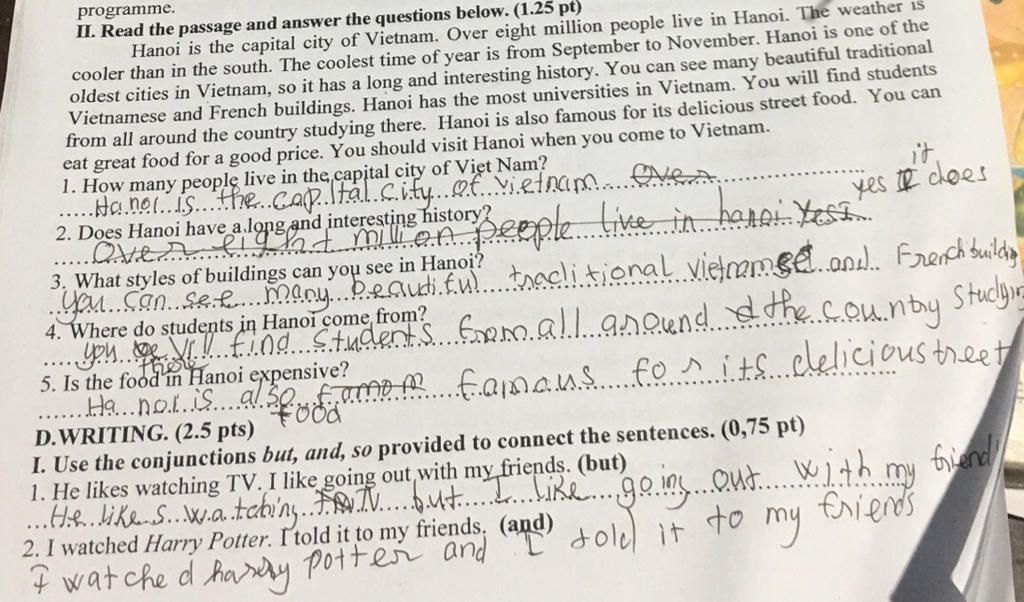 programme.
II. Read the passage and answer the questions below. (1.25 pt)
Hanoi is the capital city of Vietnam. Over eight million people live in Hanoi. The weather is
cooler than in the south. The coolest time of year is from September to November. Hanoi is one of the
oldest cities in Vietnam, so it has a long and interesting history. You can see many beautiful traditional
Vietnamese and French buildings. Hanoi has the most universities in Vietnam. You will find students
from all around the country studying there. Hanoi is also famous for its delicious street food. You can
eat great food for a good price. You should visit Hanoi when you come to Vietnam.
1. How many people live in the capital city of Viet Nam?
Ha noi is the capital city of vietnam Over
yes it does
2. Does Hanoi have a long and interesting history?
Over eight million people live in hanoi Yes I
3. What styles of buildings can you see in Hanoi?
you can see many beautiful traditional vietnamse and French building
4. Where do students in Hanoi come from?
you will find students from all around the country studying
there
5. Is the food in Hanoi expensive?
Ha noi is also famous for its delicious treet
food
D.WRITING. (2.5 pts)
I. Use the conjunctions but, and, so provided to connect the sentences. (0,75 pt)
1. He likes watching TV. I like going out with my friends. (but)
He likes watching TV but I like going out with my friend
2. I watched Harry Potter. I told it to my friends. (and)
I watched harry potter and I told it to my friends